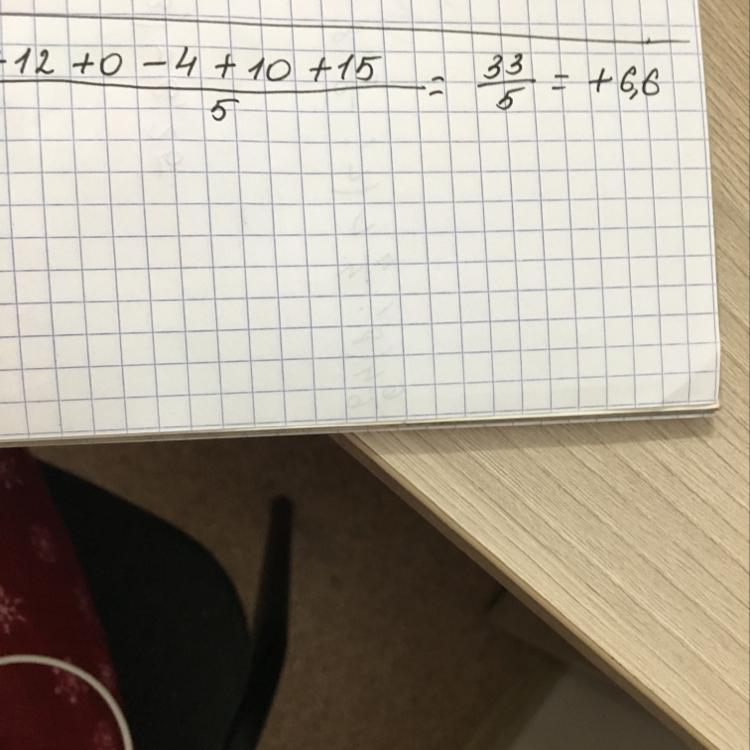 +12 +0 -4 +10 +15 / 5 = 33/5 = +6,6